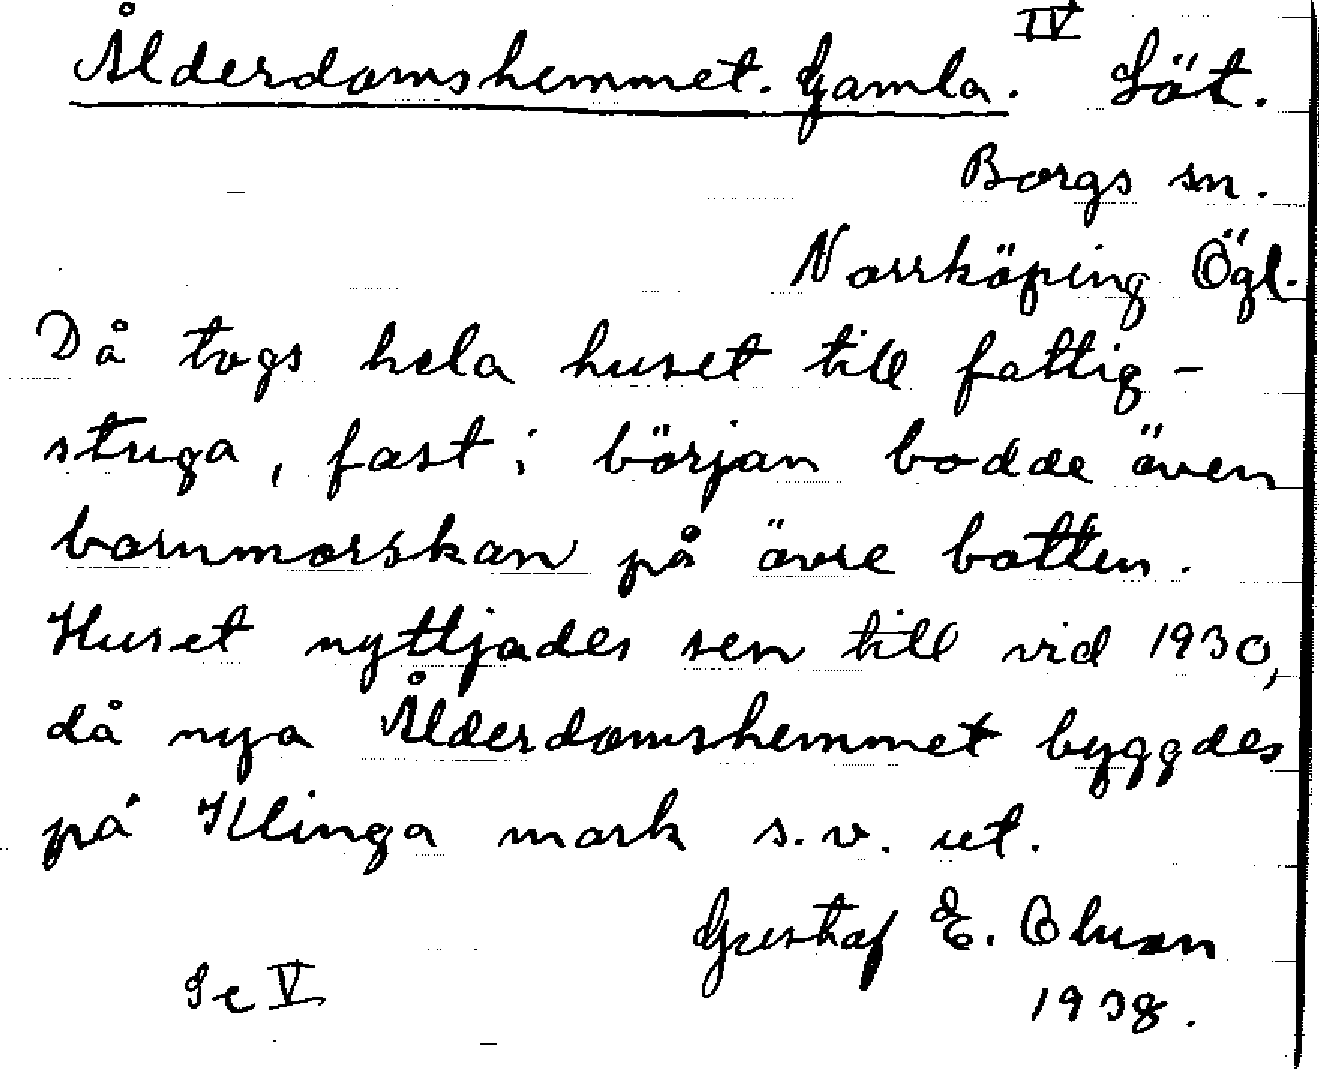 Ålderdomshemmet. Gamla. IV Löt.
Borgs sn.
Norrköping Ögl.
Då togs hela huset till fattig-
stuga, fast i början bodde även
barnmorskan på övre botten.
Huset nyttjades sen till vid 1930,
då nya Ålderdomshemmet byggdes
på Klinga mark s.v. ut.
Gustaf E. Olsson
Se V 1938.